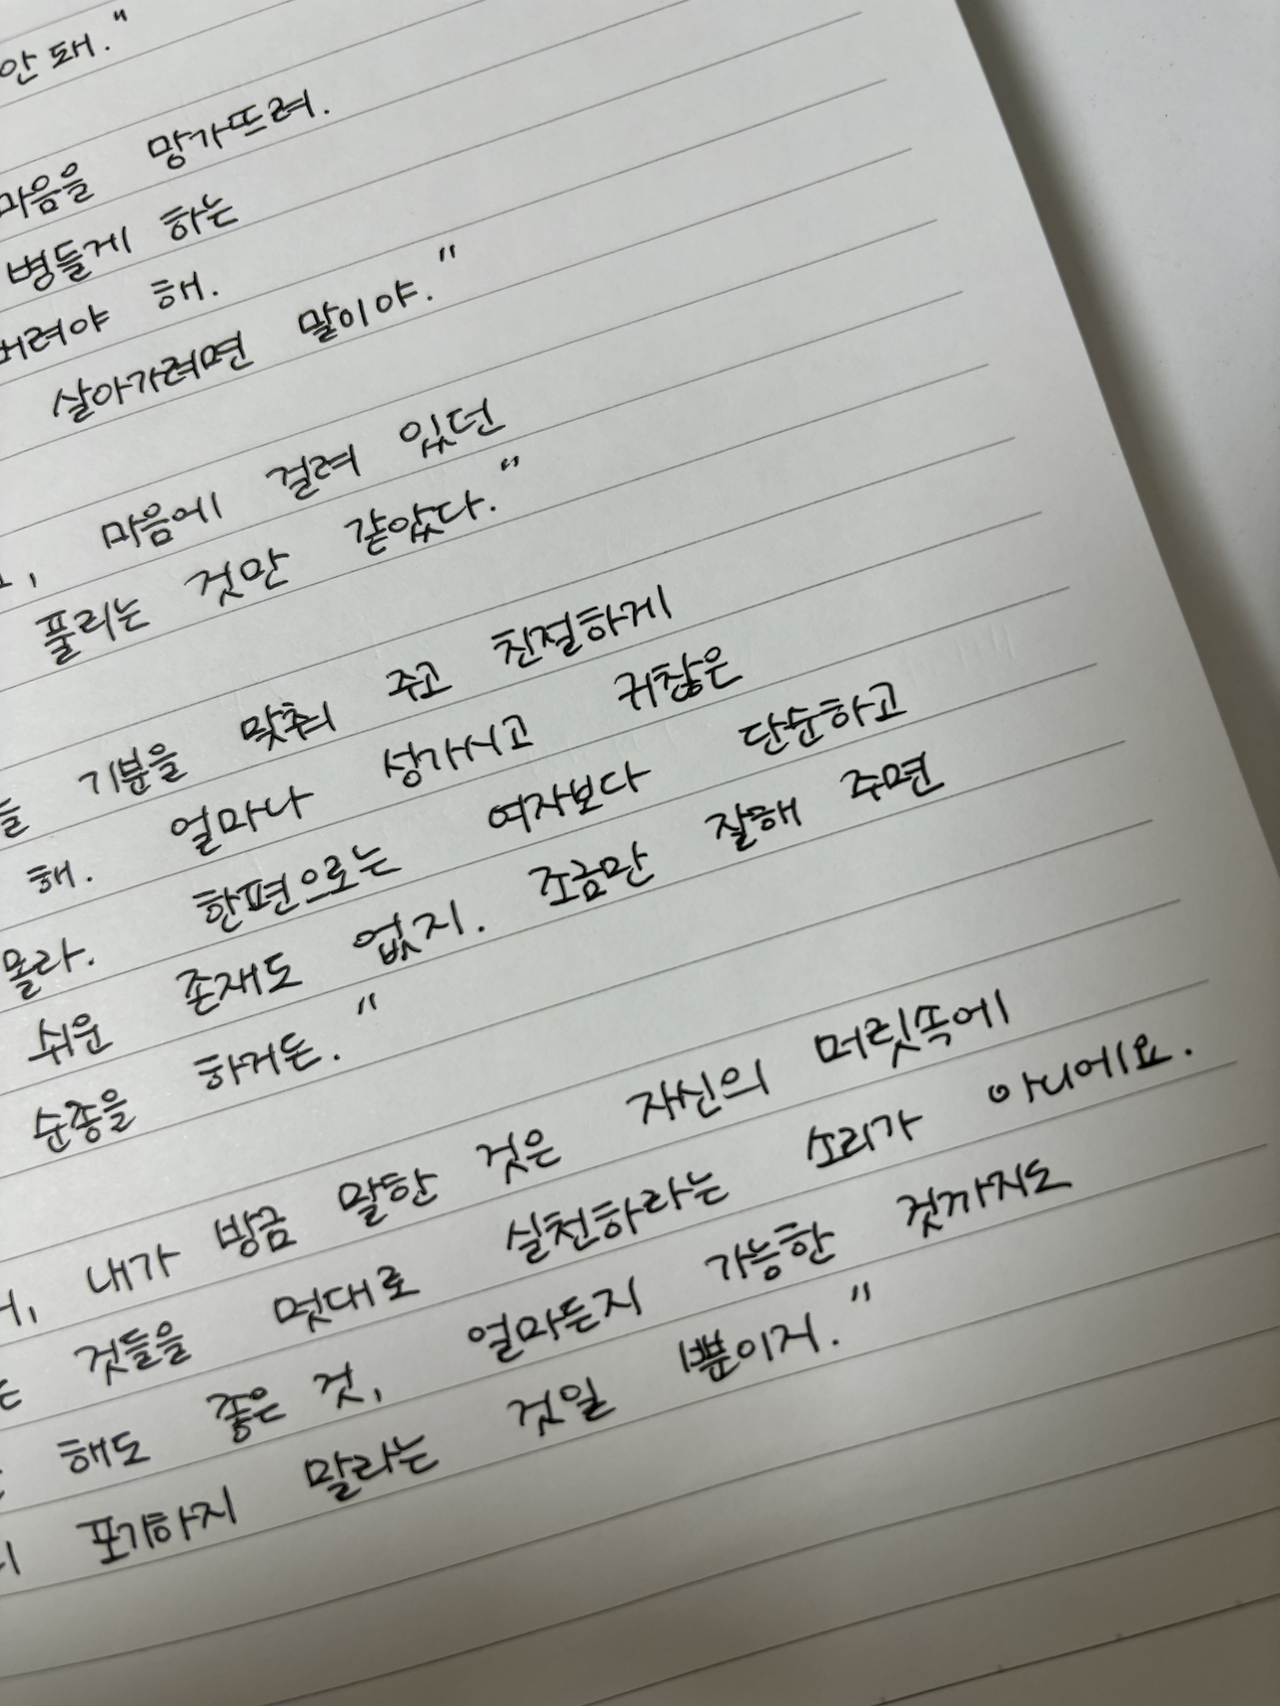 안 돼."
마음을 망가뜨려.
병들게 하는
버려야 해.
살아가려면 말이야."
마음에 걸려 있던
풀리는 것만 같았다."
기분을 맞춰 주고 친절하게
해. 얼마나 성가시고 귀찮은
몰라. 한편으로는 여자보다 단순하고
쉬운 존재도 없지. 조금만 잘해 주면
순종을 하거든."
내가 방금 말한 것은 자신의 머릿속에
것들을 멋대로 실천하라는 소리가 아니에요.
해도 좋은 것, 얼마든지 가능한 것까지도
포기하지 말라는 것일 뿐이지."